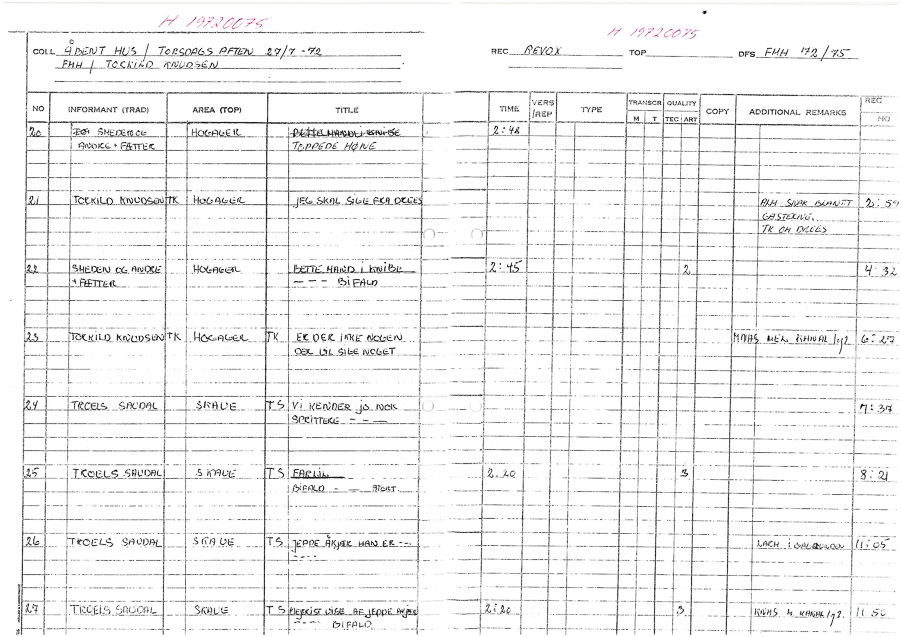 H 19720075
H 19720075
COLL ÅBENT HUS / TORSDAGS AFTEN 27/7 -72
REC REVOX TOP DFS FMH 72/75
FMH / TORKILD KNUDSEN
NO INFORMANT (TRAD) AREA (TOP) TITLE TIME VERS/REP TYPE TRANSCR M T QUALITY TEC ART COPY ADDITIONAL REMARKS REC NO
20 SMEDEN OG HOGAGER 2:48
ANDRE + FÆTTER TOPPEDE HØNE
21 TORKILD KNUDSEN TK HOGAGER JEG SKAL SIGE FRA DREES SNAK BLANDT 2:59
GÆSTERNE.
TK OM DREES
22 SMEDEN OG ANDRE HOGAGER BETTE MAND I KNIBE 2:45 2 4:32
+ FÆTTER - - - BIFALD
23 TORKILD KNUDSEN TK HOGAGER TK ER DER IKKE NOGEN 6:27
DER VIL SIGE NOGET
24 TROELS SAUDAL SKAVE TS VI KENDER JO NOK 7:37
SPRITTERE - - -
25 TROELS SAUDAL SKAVE TS FARLIL 2.20 3 8:21
BIFALD - -
26 TROELS SAUDAL SKAVE TS JEPPE ÅKJÆR HAN ER - - - 11:05
- - - -
27 TROELS SAUDAL SKAVE TS VISE AF JEPPE 2:20 3 11:50
- - - BIFALD